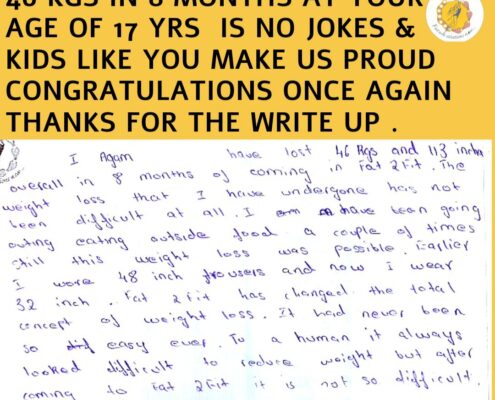 46 KGS IN 8 MONTHS AT YOUR
AGE OF 17 YRS IS NO JOKES &
KIDS LIKE YOU MAKE US PROUD
CONGRATULATIONS ONCE AGAIN
THANKS FOR THE WRITE UP .
I Agam have lost 46 Kgs and 113 inches
overall in 8 months of coming in Fat 2 Fit. The
weight loss that I have undergone has not
been difficult at all. I have been going
outing eating outside food a couple of times
still this weight loss was possible. Earlier
I wore 48 inch trousers and now I wear
32 inch. Fat 2 Fit has changed the total
concept of weight loss. It had never been
so easy ever. To a human it always
looked difficult to reduce weight but after
coming to Fat 2 Fit it is not so difficult.